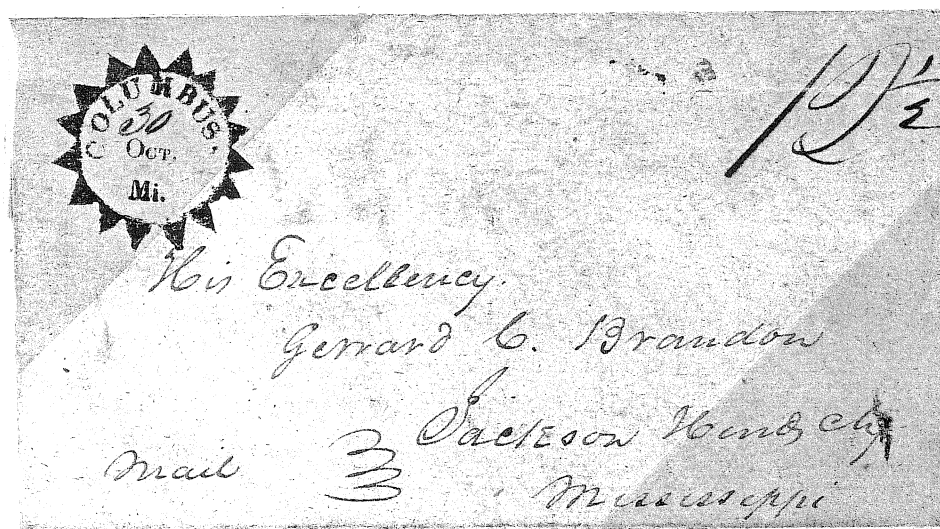 COLUMBUS.
30
OCT.
Mi.
12 1/2
His Excellency.
Gerrard C. Brandon
Jackson Hinds Cty
Mississippi
Mail